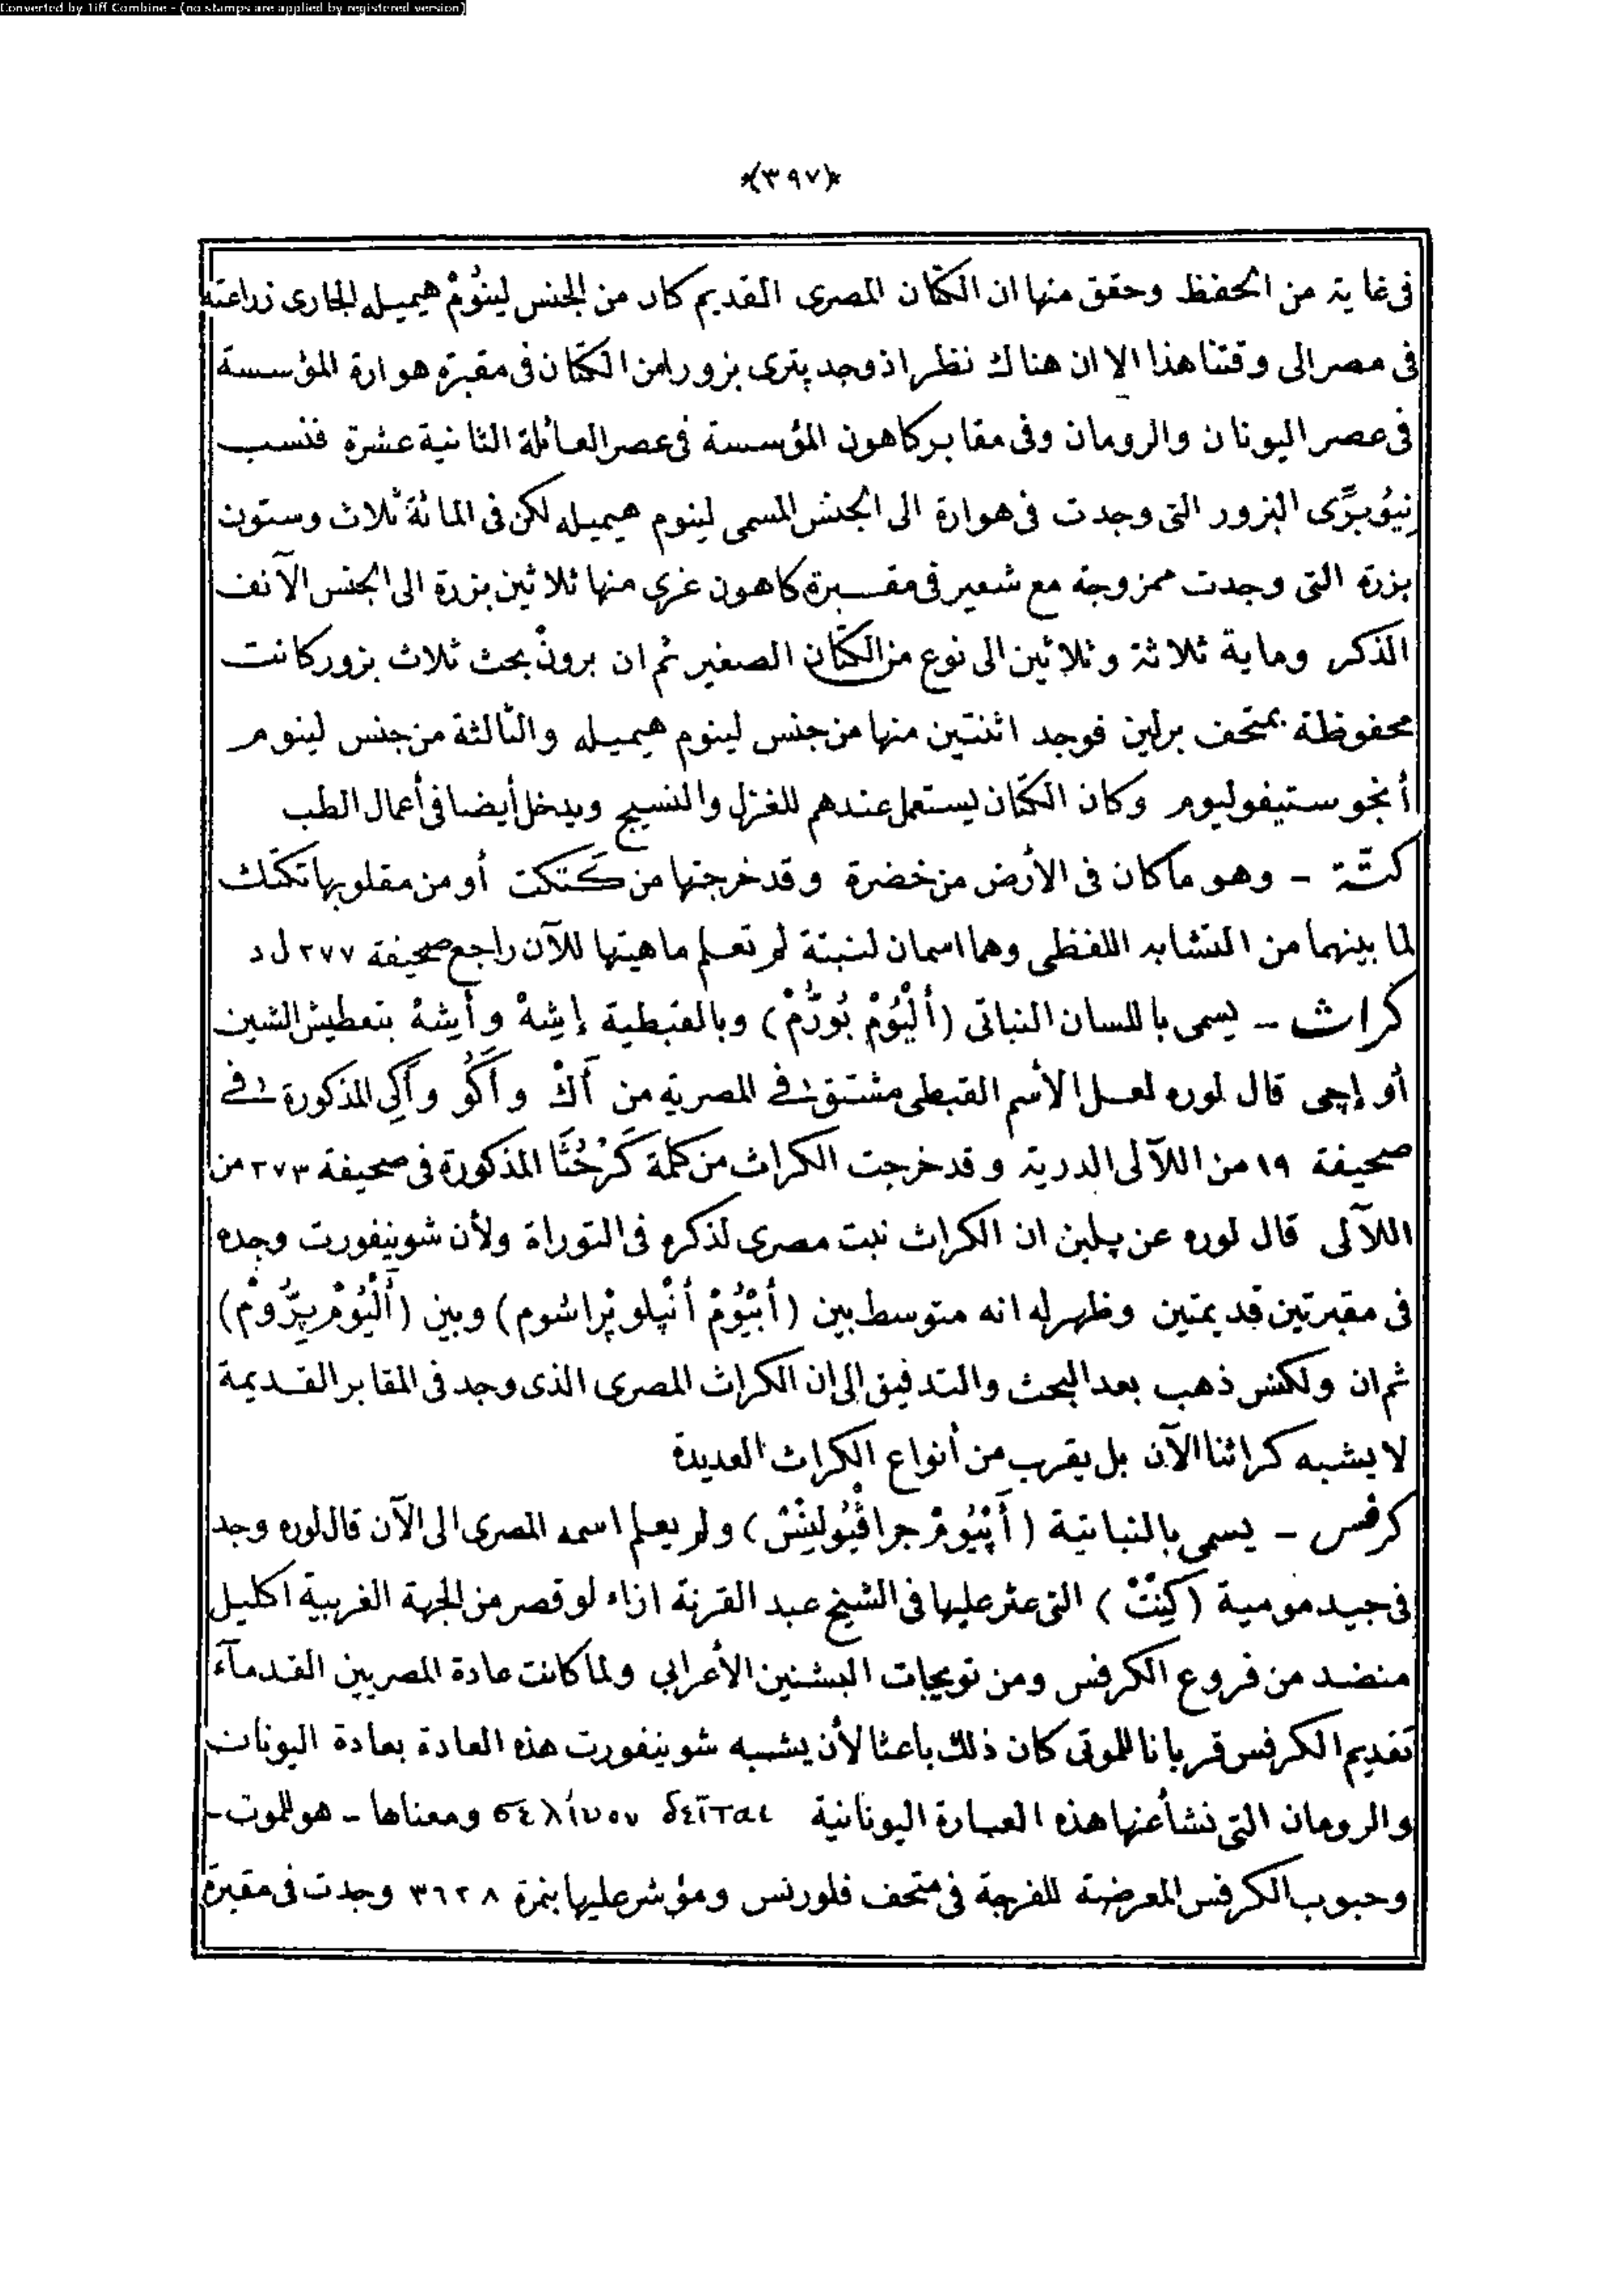 Converted by Tiff Combine - (no stamps are applied by registered version)
﴿٣٩٧﴾
فى غاية من الحفظ وحقق منها ان الكتّان المصرى القديم كان من الجنس لينُومْ هيميله الجارى زراعته
فى مصر الى وقتنا هذا الا ان هناك نظرا اذ وجد پترى بزورا من الكتّان فى مقبرة هوارة المؤسسة
فى عصر اليونان والرومان وفى مقابر كاهون المؤسسة فى عصر العائلة الثانية عشرة فنسب
نِيُوبرِّى البزور التى وجدت فى هوارة الى الجنس المسمى لينوم هيميله لكن فى المائة ثلاث وستون
بزرة التى وجدت ممزوجة مع شعير فى مقبرة كاهون عزى منها ثلاثين بزرة الى الجنس الآنف
الذكر وماية ثلاثة وثلاثين الى نوع من الكتّان الصغير ثم ان برونْ بحث ثلاث بزور كانت
محفوظة بمتحف برلين فوجد اثنتين منها من جنس لينوم هيميله والثالثة من جنس لينوم
أنجو ستيفوليوم وكان الكتّان يستعمل عندهم للغزل والنسيج ويدخل أيضا فى أعمال الطب
كتّة - وهو ما كان فى الأرض من خضرة وقد خرجتها من كَتكت أو من مقلوبها تكتك
لما بينهما من التشابه اللفظى وهما اسمان لنبتة لم تعلم ماهيتها للآن راجع صحيفة ٢٧٧ ل د
كراث - يسمى باللسان النباتى (ألْيُومْ بُورُّمْ) وبالقبطية إِشِةْ وأَيِشةْ بتعطيش الشين
أو إچى قال لوره لعل الأسم القبطى مشتق فى المصرية من أَكْ وأَكُو وأَكِى المذكورة فى
صحيفة ١٩ من اللآلى الدرية وقد خرجت الكراث من كلمة كَرْحُتَّا المذكورة فى صحيفة ٢٧٣ من
اللآلى قال لوره عن پلين ان الكراث نبت مصرى لذكره فى التوراة ولأن شوينفورت وجده
فى مقبرتين قديمتين وظهر له انه متوسط بين (أبْيُومْ أنْپلو پْراشوم) وبين (ألْيُومْ پرُّومْ)
ثم ان ولكنس ذهب بعد البحث والتدقيق الى ان الكراث المصرى الذى وجد فى المقابر القديمة
لا يشبه كراثنا الآن بل يقرب من أنواع الكراث العديدة
كرفس - يسمى بالنباتية (أَپْيُومْ جراڤيُولِنِسْ) ولم يعلم اسمه المصرى الى الآن قال لوره وجد
فى جيد مومية (كِنِتْ) التى عثر عليها فى الشيخ عبد القرنة ازاء لوقصر من الجهة الغربية اكليل
منضد من فروع الكرفس ومن تويجات البشنين الأعرابى ولما كانت عادة المصريين القدمآء
تقديم الكرفس قربانا للموتى كان ذلك باعثا لأن يشبه شوينفورت هذه العادة بعادة اليونان
والرومان التى نشأ عنها هذه العبارة اليونانية σελίνου δεῖται ومعناها - هو للموت -
وحبوب الكرفس المعرضة للفرجة فى متحف فلورنس ومؤشر عليها بنمرة ٣٦٢٨ وجدت فى مقبرة